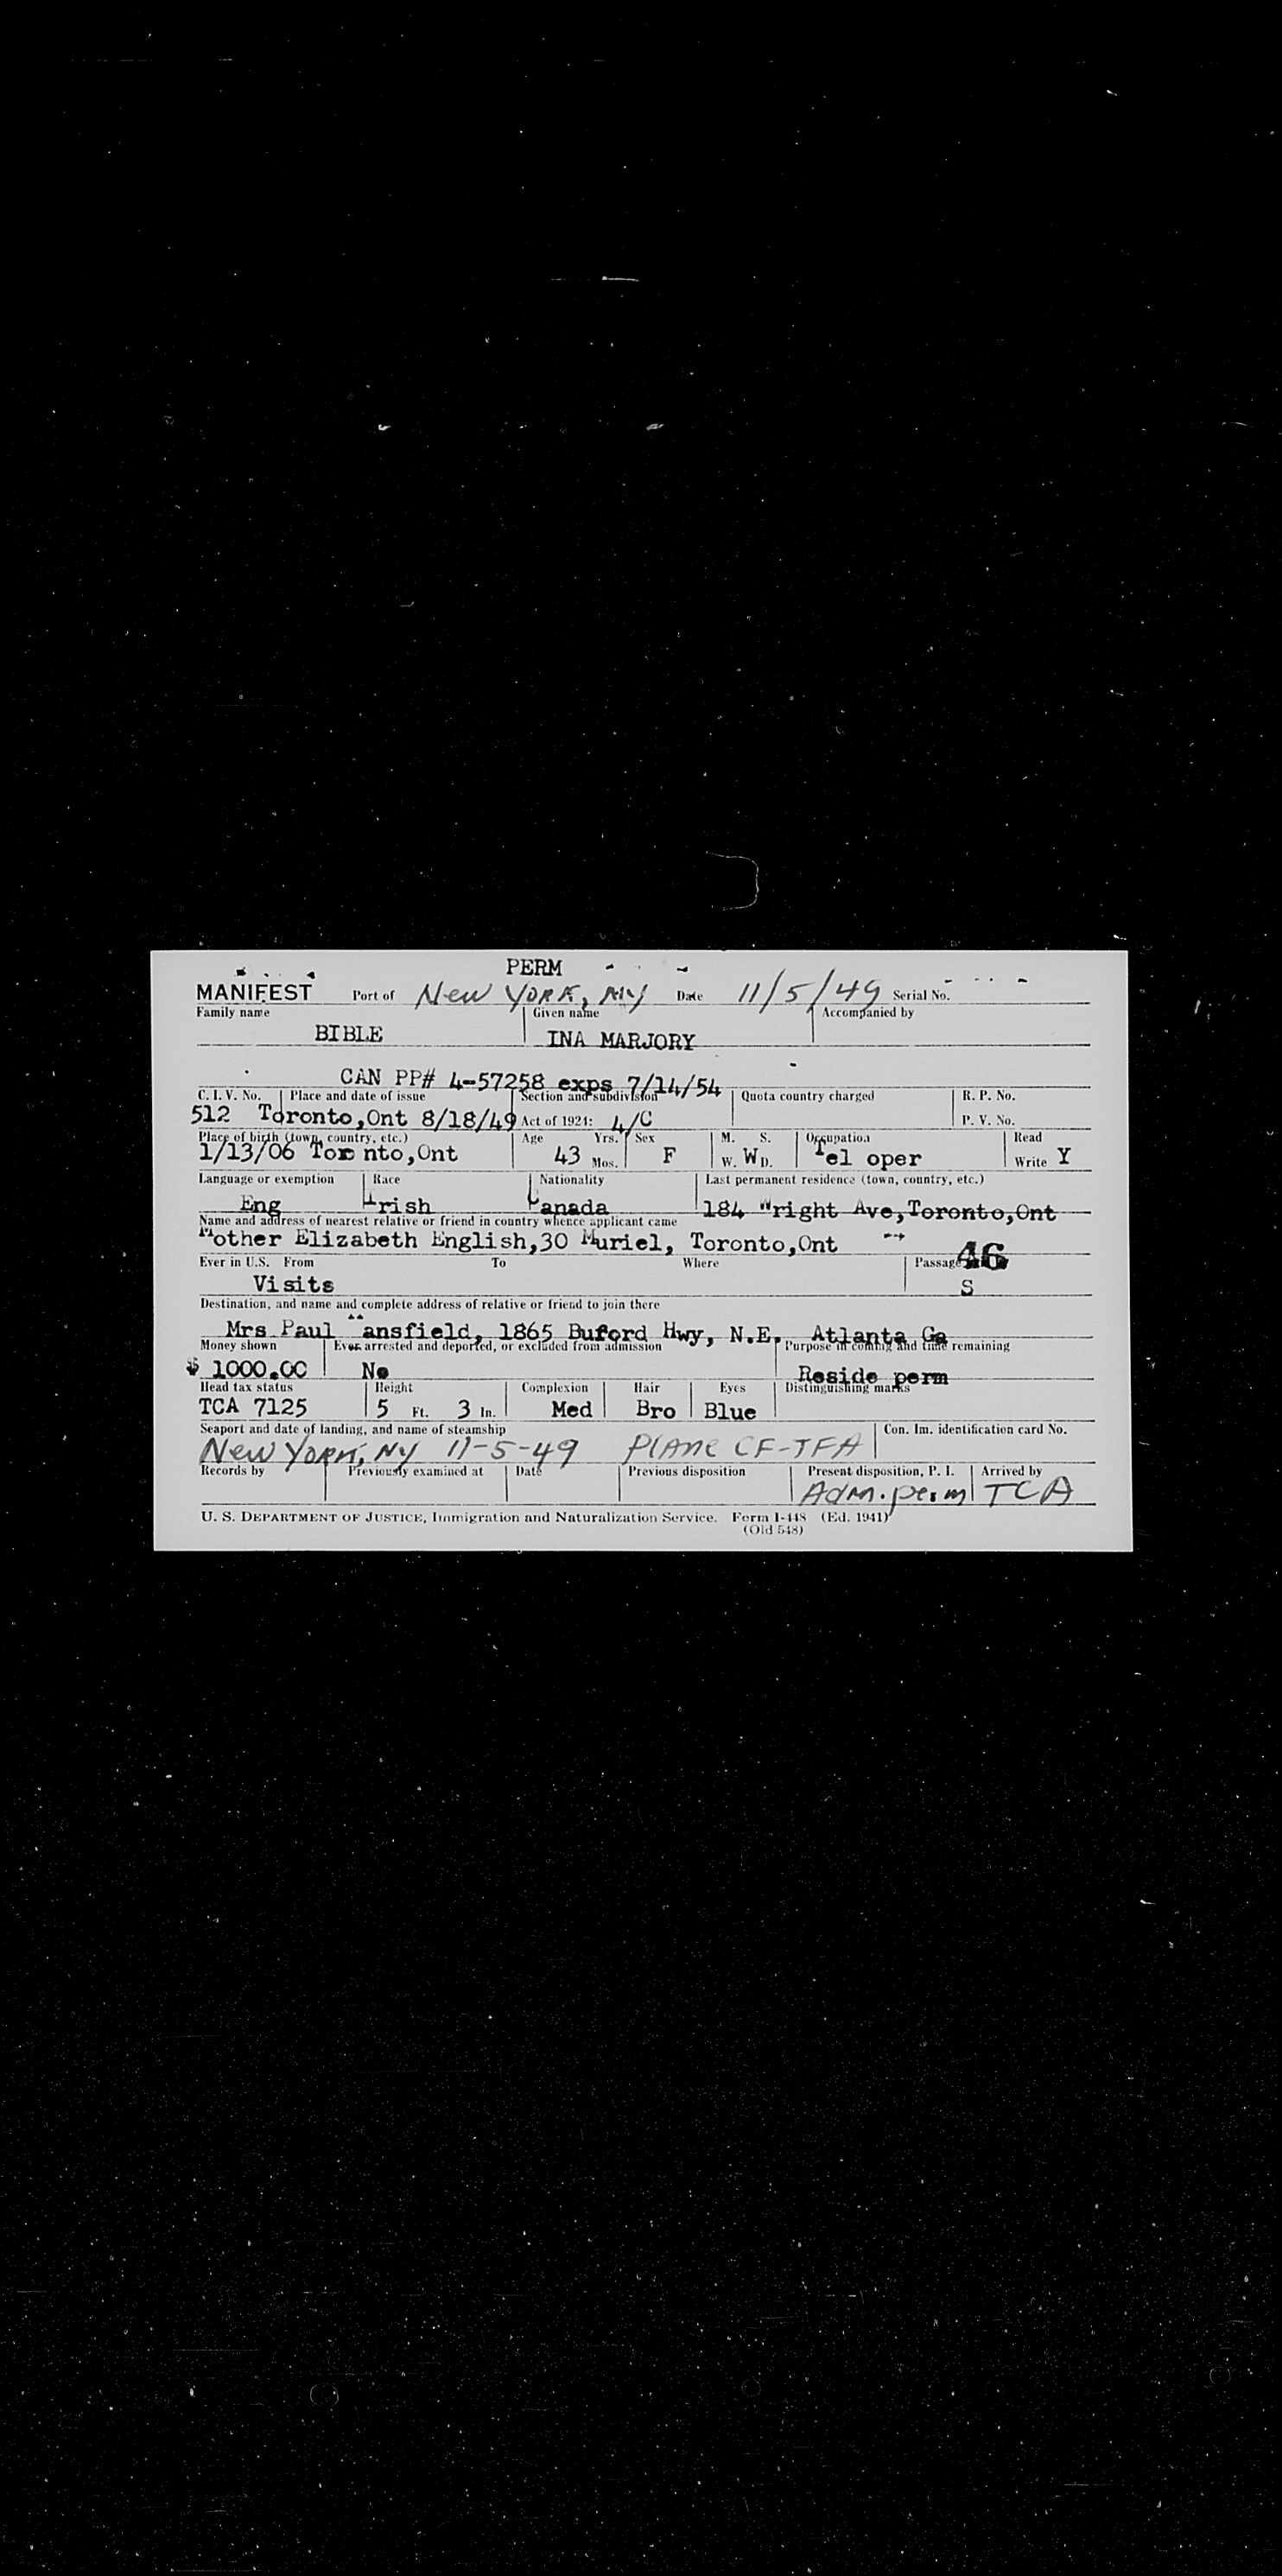 PERM
MANIFEST Port of New York, NY Date 11/5/49 Serial No.
Family name Given name Accompanied by
BIBLE INA MARJORY
CAN PP# 4-57258 exps 7/14/54
C. I. V. No. Place and date of issue Section and subdivision Quota country charged R. P. No.
512 Toronto,Ont 8/18/49 Act of 1924: 4/C P. V. No.
Place of birth (town, country, etc.) Age Yrs. Sex M. S. Occupation Read
1/13/06 Toro nto,Ont 43 Mos. F W. W D. Tel oper Write Y
Language or exemption Race Nationality Last permanent residence (town, country, etc.)
Eng Irish Canada 184 Wright Ave,Toronto,Ont
Name and address of nearest relative or friend in country whence applicant came
Mother Elizabeth English,30 Muriel, Toronto,Ont 46
Ever in U.S. From To Where Passage
Visits S
Destination, and name and complete address of relative or friend to join there
Mrs Paul Mansfield, 1865 Buford Hwy, N.E. Atlanta Ga
Money shown Ever arrested and deported, or excluded from admission Purpose in coming and time remaining
$ 1000.00 No Reside perm
Head tax status Height Complexion Hair Eyes Distinguishing marks
TCA 7125 5 Ft. 3 In. Med Bro Blue
Seaport and date of landing, and name of steamship Con. Im. identification card No.
New York, NY 11-5-49 PLANE CF-TFA
Records by Previously examined at Date Previous disposition Present disposition, P. I. Arrived by
Adm. perm TCA
U. S. DEPARTMENT OF JUSTICE, Immigration and Naturalization Service. Form I-448 (Ed. 1941)
(Old 548)